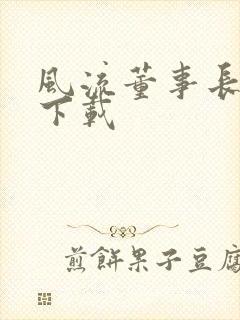 風流董事長
下載
煎餅果子豆腐